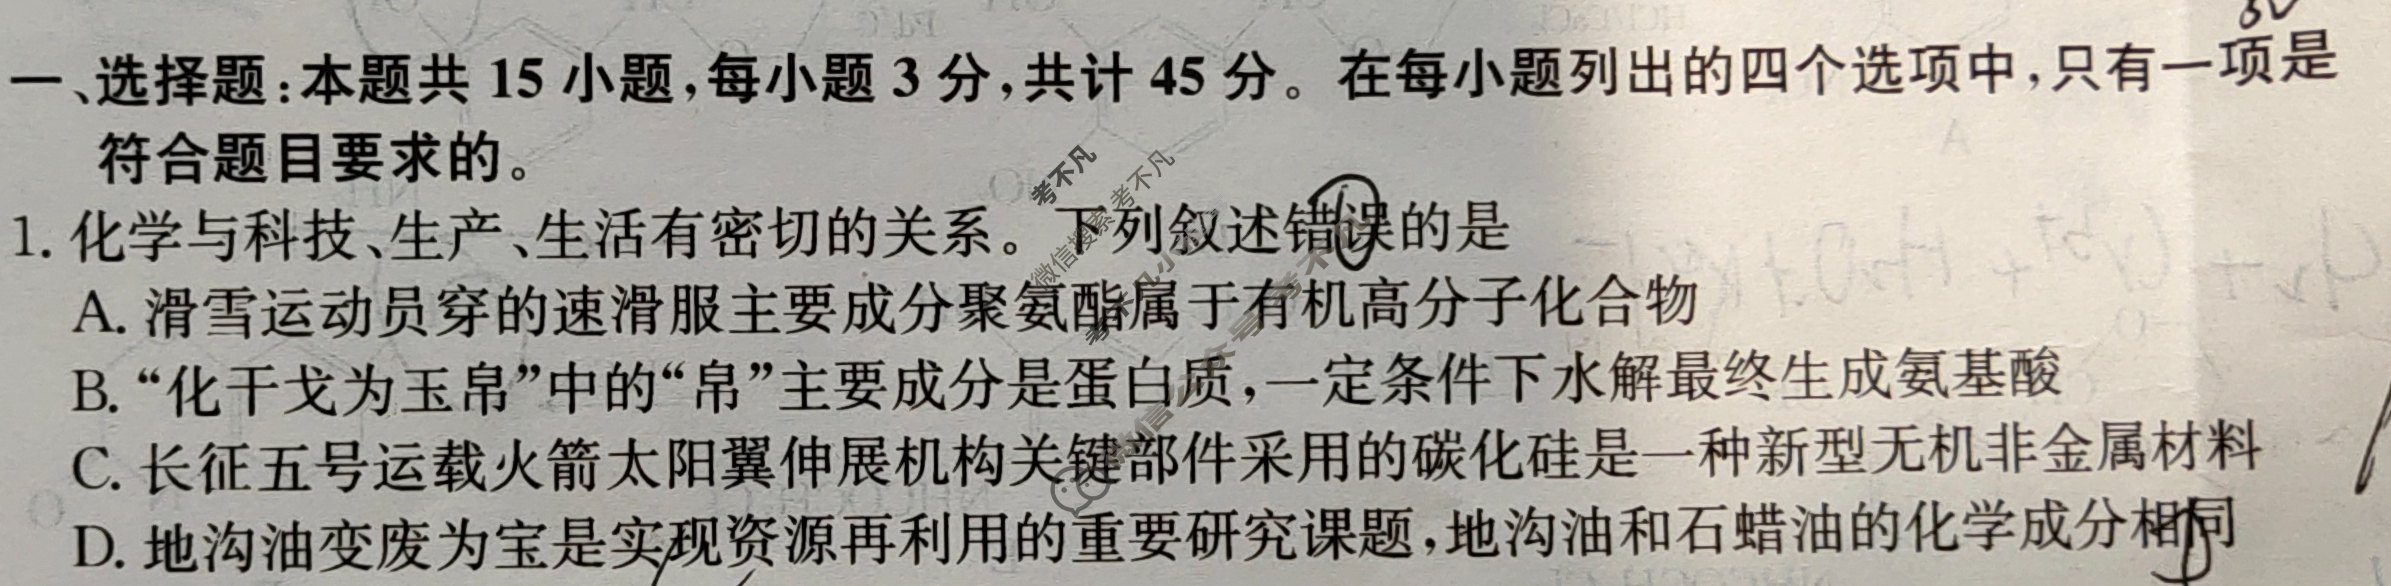 一、选择题:本题共 15 小题,每小题 3 分,共计 45 分。在每小题列出的四个选项中,只有一项是
符合题目要求的。
1. 化学与科技、生产、生活有密切的关系。下列叙述错误的是
A. 滑雪运动员穿的速滑服主要成分聚氨酯属于有机高分子化合物
B. “化干戈为玉帛”中的“帛”主要成分是蛋白质,一定条件下水解最终生成氨基酸
C. 长征五号运载火箭太阳翼伸展机构关键部件采用的碳化硅是一种新型无机非金属材料
D. 地沟油变废为宝是实现资源再利用的重要研究课题,地沟油和石蜡油的化学成分相同
考不凡
微信搜索 考不凡